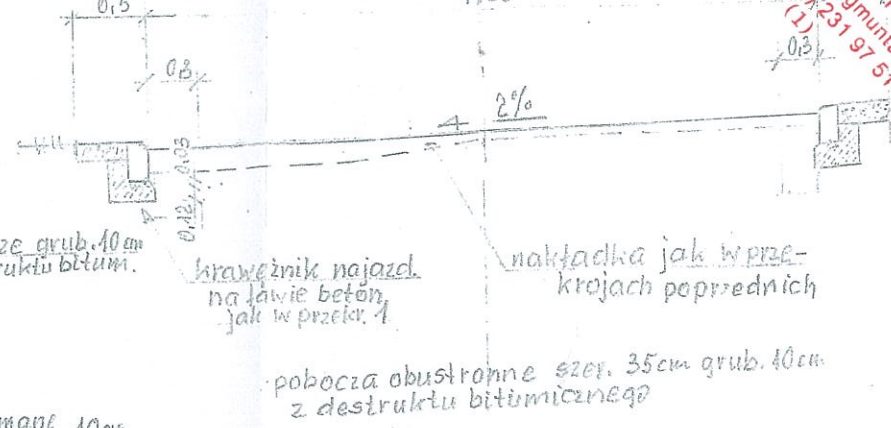 0,5
(1)
231 97 51
0,3
0,3
2%
0,03
0,12
ze grub. 10 cm
ruktu bitum.
krawężnik najazd.
na ławie beton.
jak w przekr. 1
nakładka jak w prze-
krojach poprzednich
pobocza obustronne szer. 35cm grub. 10cm
z destruktu bitumicznego